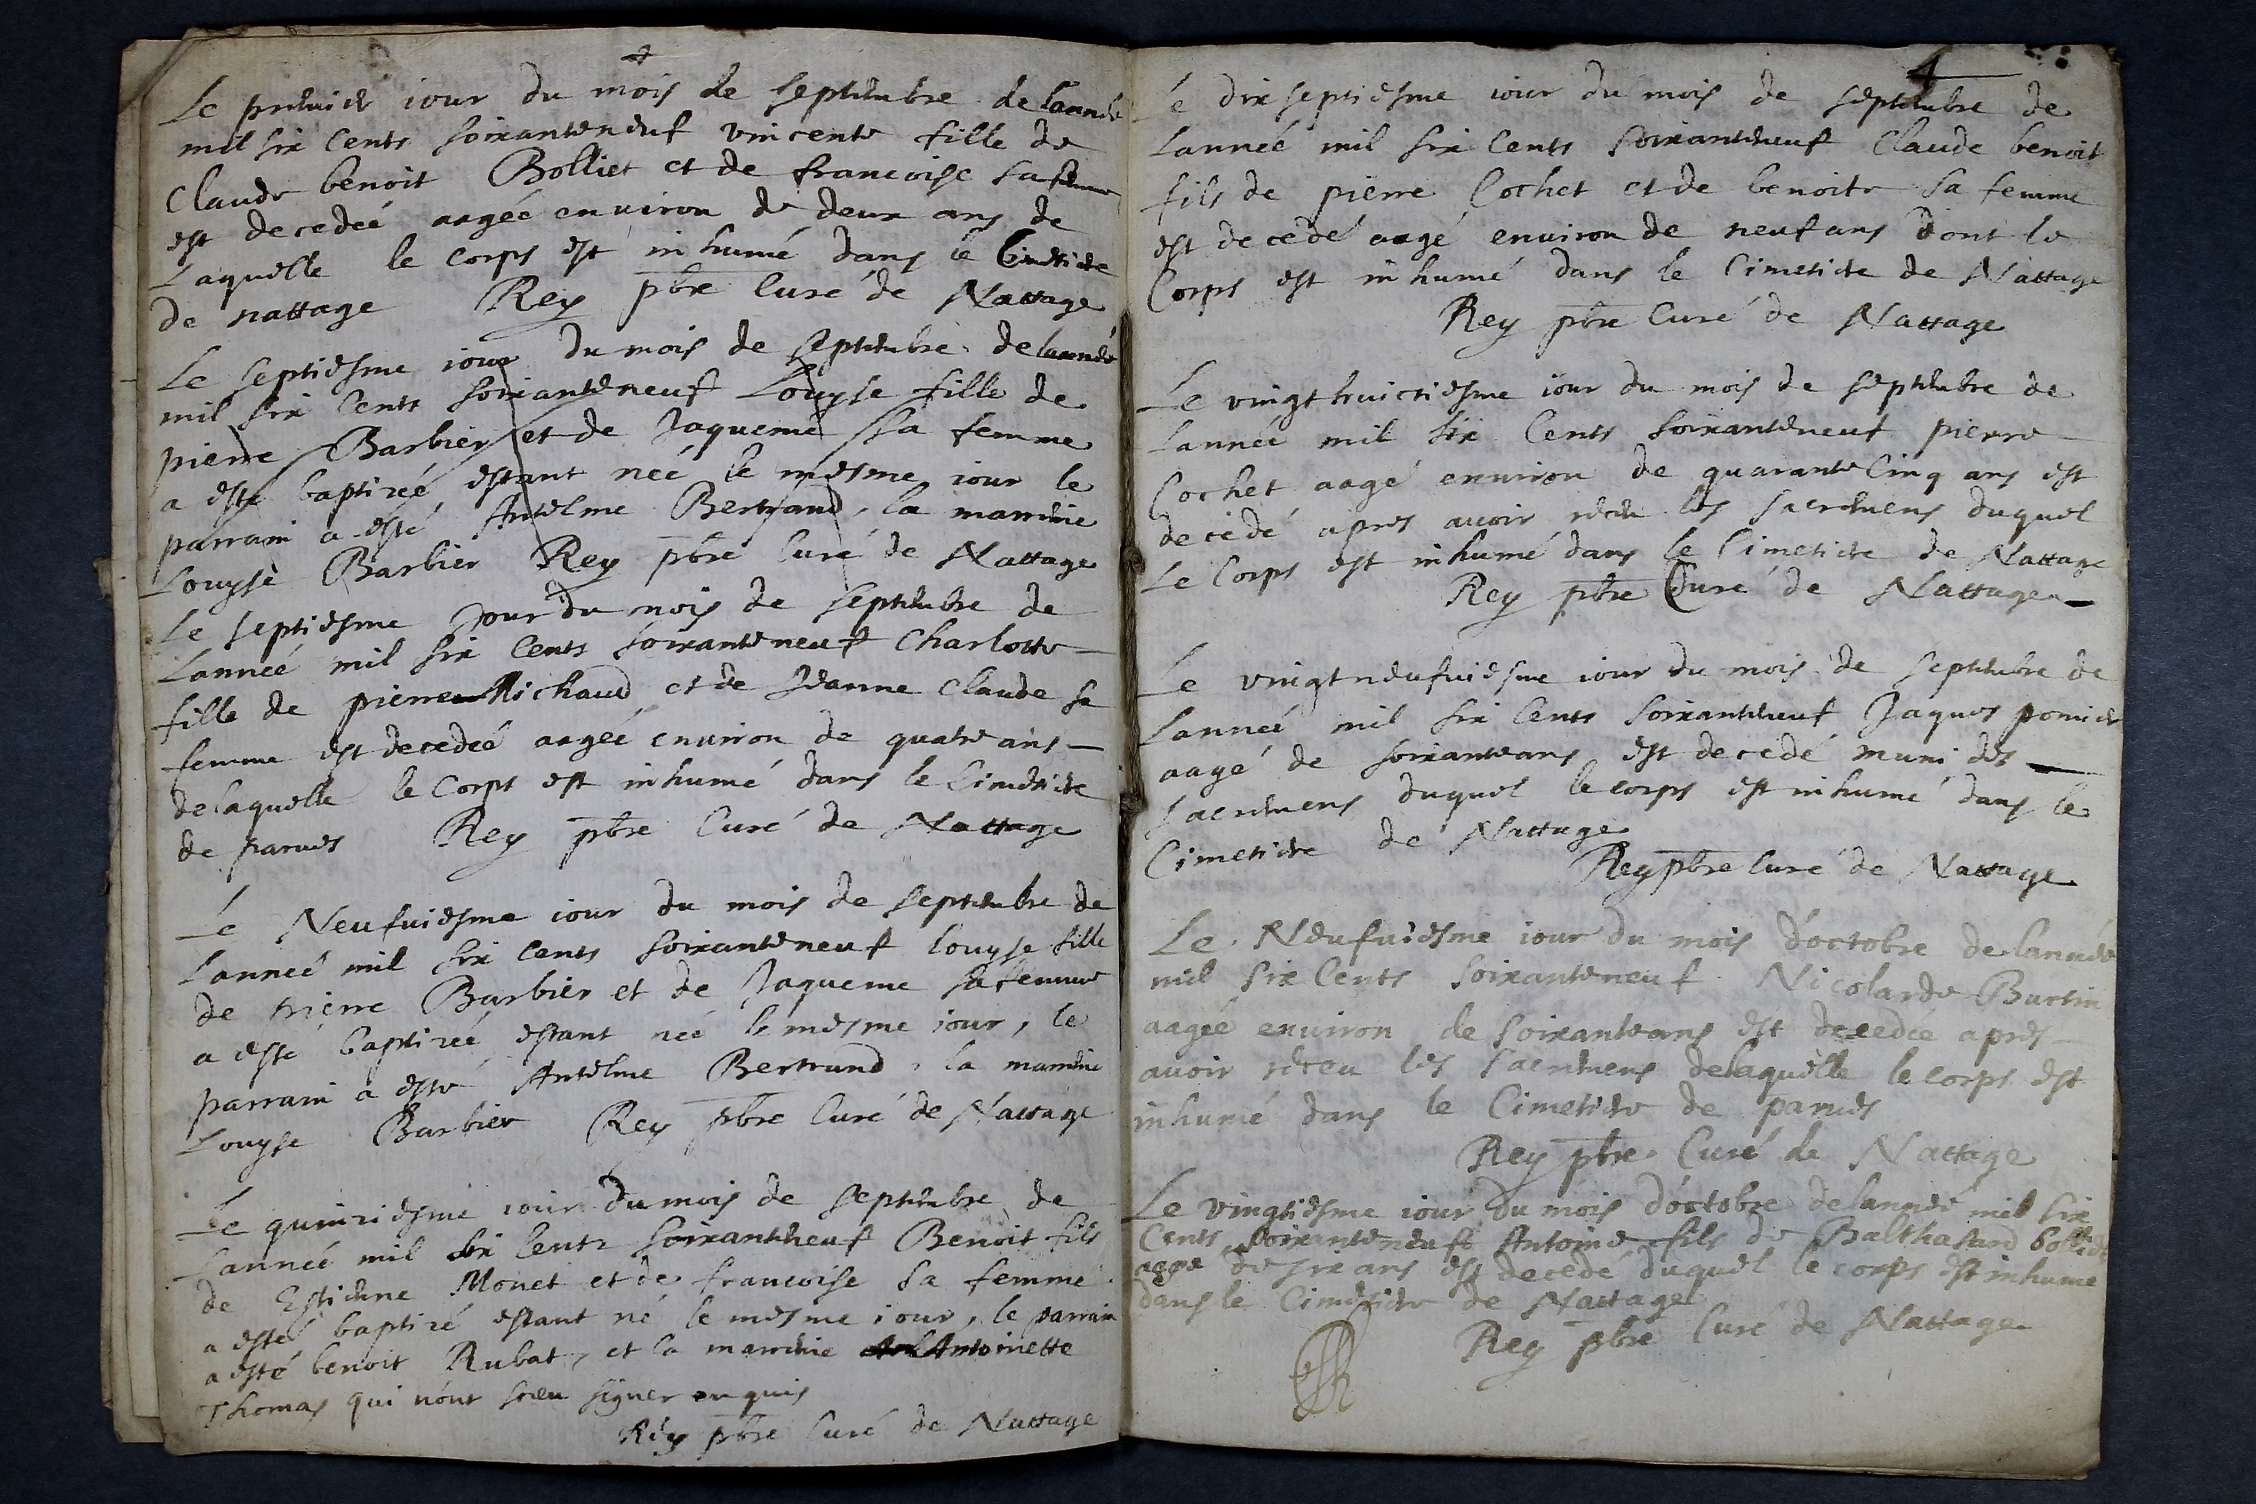 Le premier iour du mois de septembre de lanneé
mil six cents soixanteneuf vincente fille de
Claude benoit Bolliet et de francoise sa femme
est decedeé aagéé enuiron de deux ans de
Laquelle le corps est inhumé dans le Cimetiere
de nattage Rey pbre Curé de Nattage
Le septiesme iour du mois de septembre de lanneé
mil six Cents soixanteneuf Louyse fille de
pierre Barbier et de Jaqueme sa femme
a esté baptizeé estant neé le mesme iour le
parrain a esté Antelme Bertrand, la marraine
Louyse Barbier Rey pbre Curé de Nattage
Le septiesme Jour du mois de septembre de
Lanneé mil six Cents soixanteneuf Charlotte
fille de pierre Michaud et de Jeanne Claude sa
femme est decedeé aagéé enuiron de quatre ans
de laquelle le Corps est inhumé dans le Cimetiere
de parues Rey pbre Curé de Nattage
Le Neufuiesme iour du mois de septembre de
Lanneé mil six Cents soixanteneuf louyse fille
de pierre Barbier et de Jaqueme sa femme
a esté baptizeé estant neé le mesme iour, le
parrain a esté Antelme Bertrand, la marraine
Louyse Barbier Rey pbre Curé de Nattage
Le quinziesme iour du mois de septembre de
Lanneé mil six Cents soixanteneuf Benoit fils
de Estienne Monet et de francoise sa femme
a esté baptizé estant né le mesme iour, le parrain
a esté benoit Rubat, et la marraine Antoinette
Thomas qui nont sceu signer enquis
Rey pbre Curé de Nattage
4
Le dixseptiesme iour du mois de septembre de
Lanneé mil six Cents soixanteneuf Claude benoit
fils de pierre Cochet et de benoite sa femme
est decedé aagé enuiron de neuf ans dont le
Corps est inhumé dans le Cimetiere de Nattage
Rey pbre Curé de Nattage
Le vingthuictiesme iour du mois de septembre de
Lanneé mil six Cents soixanteneuf pierre
Cochet aagé enuiron de quarante Cinq ans est
decedé apres auoir receu les sacremens duquel
Le Corps est inhumé dans le Cimetiere de Nattage
Rey pbre Curé de Nattage
Le vingtneufuiesme iour du mois de septembre de
Lanneé mil six Cents soixanteneuf Jaques pomier
aagé de soixante ans est decedé muni des
sacremens duquel le corps est inhumé dans le
Cimetiere de Nattage
Rey pbre Curé de Nattage
Le Neufuiesme iour du mois d'octobre de lanneé
mil six Cents soixanteneuf Nicolarde Burtin
aagéé enuiron de soixante ans est decedéé apres
auoir receu les sacremens de laquelle le corps est
inhumé dans le Cimetiere de parues
Rey pbre Curé de Nattage
Le vingtiesme iour du mois d'octobre de lanneé mil six
Cents soixanteneuf Antoine fils de Balthasard bolliet
aagé de six ans est decedé duquel le corps est inhumé
dans le Cimetiere de Nattage
Rey pbre Curé de Nattage